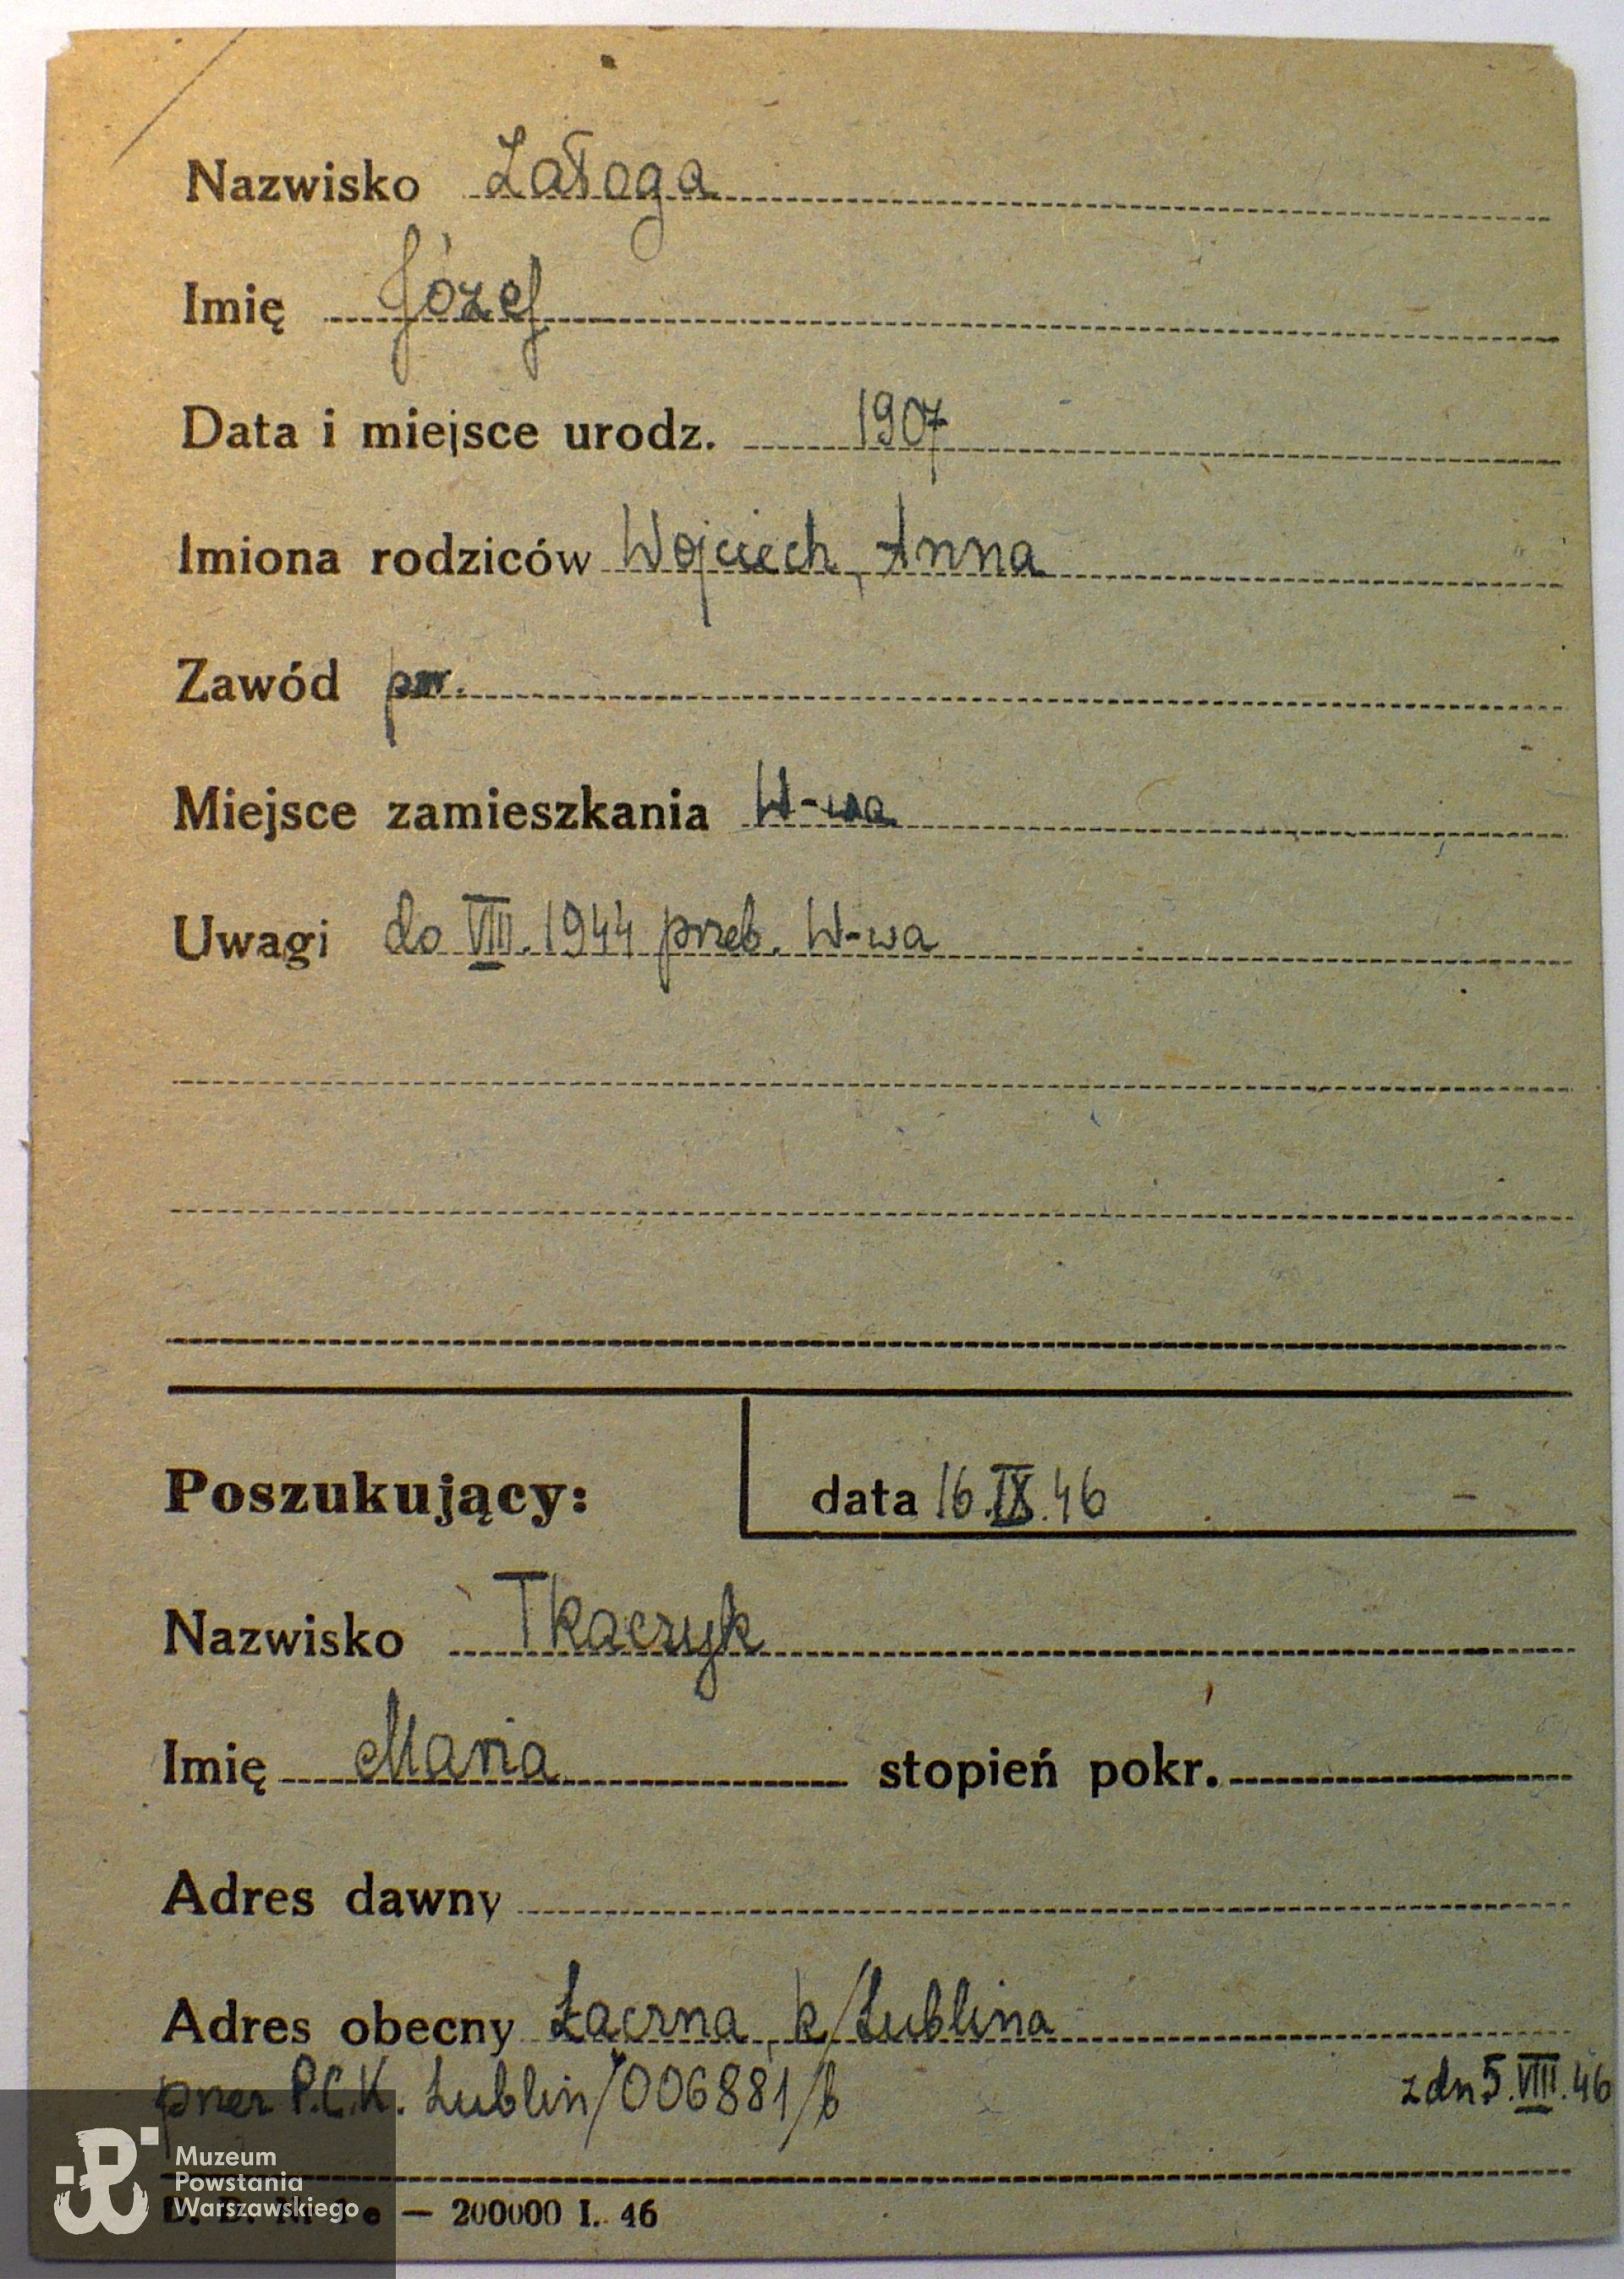 Nazwisko Załoga
Imię Józef
Data i miejsce urodz. 1907
Imiona rodziców Wojciech, Anna
Zawód
Miejsce zamieszkania W-wa
Uwagi do VIII. 1944 przeb. W-wa
Poszukujący: data 16.IX.46
Nazwisko Tkaczyk
Imię Maria stopień pokr.
Adres dawny
Adres obecny Łączna, k/Lublina
przez P.C.K. Lublin/006881/b z dn 5.VIII.46
Muzeum
Powstania
Warszawskiego
— 200000 I. 46